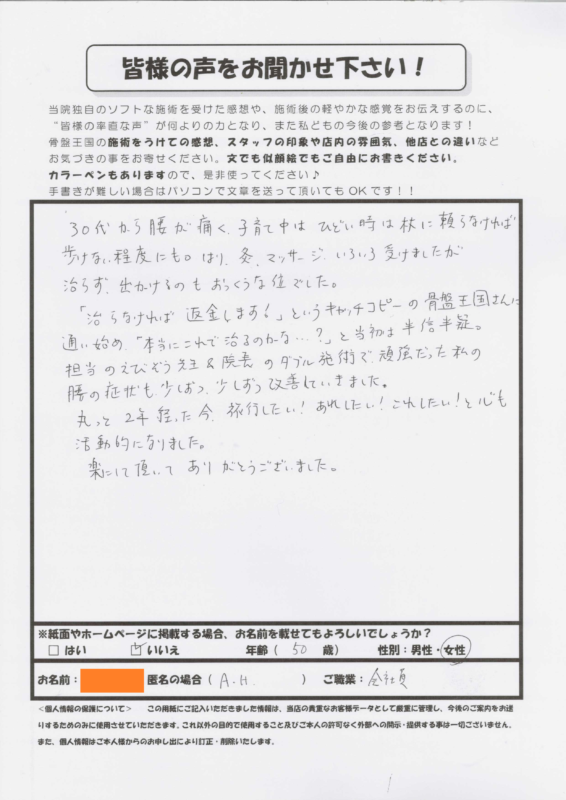 皆様の声をお聞かせ下さい！
当院独自のソフトな施術を受けた感想や、施術後の軽やかな感覚をお伝えするのに、
“皆様の率直な声”が何よりの力となり、また私どもの今後の参考となります！
骨盤王国の施術をうけての感想、スタッフの印象や店内の雰囲気、他店との違いなど
お気づきの事をお寄せください。文でも似顔絵でもご自由にお書きください。
カラーペンもありますので、是非使ってください♪
手書きが難しい場合はパソコンで文章を送って頂いてもOKです！！
30代から腰が痛く、子育て中は ひどい時は杖に頼らなければ
歩けない程度にも。はり、灸、マッサージ、いろいろ受けましたが
治らず、出かけるのもおっくうな位でした。
「治らなければ 返金します！」というキャッチコピーの骨盤王国さんに
通い始め、“本当にこれで治るのかな…？”と当初は半信半疑。
担当のえびぞう先生&院長のダブル施術で、頑強だった私の
腰の症状も少しずつ、少しずつ改善していきました。
丸っと 2年経った今、旅行したい！あれしたい！これしたい！と心も
活動的になりました。
楽にして頂いて ありがとうございました。
※紙面やホームページに掲載する場合、お名前を載せてもよろしいでしょうか？
□ はい ☑ いいえ 年齢（ 50 歳） 性別：男性・女性
お名前： 匿名の場合（ A.H. ） ご職業：会社員
＜個人情報の保護について＞ この用紙にご記入いただきました情報は、当店の貴重なお客様データとして厳重に管理し、今後のご案内をお送
りするためのみに使用させていただきます。これ以外の目的で使用すること及びご本人の許可なく外部への開示・提供する事は一切ございません。
また、個人情報はご本人様からのお申し出により訂正・削除いたします。